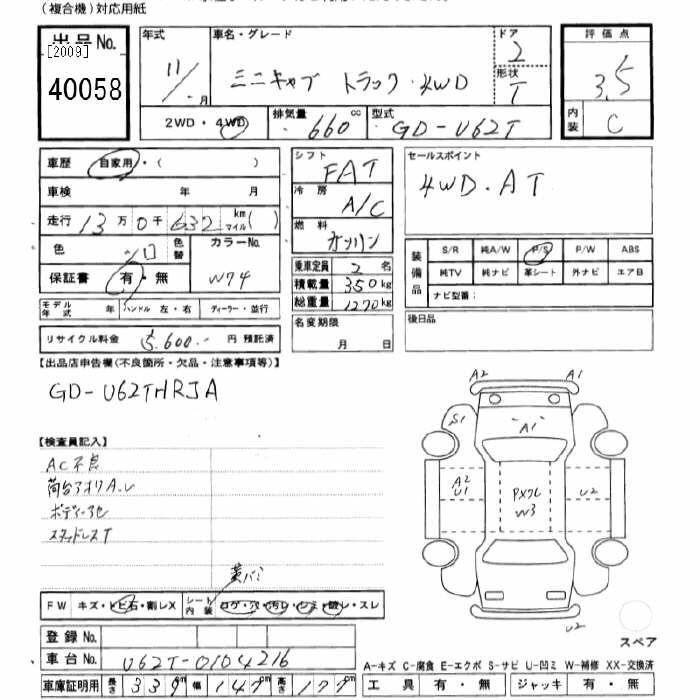 (複合機)対応用紙
出品No.
[2009]
40058
年式
11/ 月
車名・グレード
ミニキャブ トラック・4WD
ドア
2
形状
T
評価点
3.5
内装
C
2WD・4WD
排気量
660 cc
型式
GD-U62T
車歴
自家用・( )
車検 年 月
走行 13万0千632 km マイル( )
色 シロ
色替
カラーNo.
W74
保証書 有・無
モデル年式 年
ハンドル 左・右
ディーラー・並行
リサイクル料金 5,600 円 預託済
シフト
FAT
冷房
A/C
燃料
ガソリン
乗車定員 2 名
積載量 350 kg
総重量 1270 kg
名変期限
月 日
セールスポイント
4WD.AT
装備品
S/R 純A/W P/S P/W ABS
純TV 純ナビ 革シート 外ナビ エアB
ナビ型番:
後日品
【出品店申告欄(不良箇所・欠品・注意事項等)】
GD-U62THRJA
【検査員記入】
AC不良
荷台アオリA.U
スタッドレスT
FW キズ・トビ石・割レX
シート内装
コゲ・穴・汚レ・シミ・破レ・スレ
A2 A1
S1
A1
A2
U1
PXクレ
W3
U2
U2
スペア
登録No.
車台No.
U62T-0104216
車庫証明用 長さ 339 cm 幅 147 cm 高さ 177 cm
A-キズ C-腐食 E-エクボ S-サビ U-凹ミ W-補修 XX-交換済
工具 有・無 ジャッキ 有・無